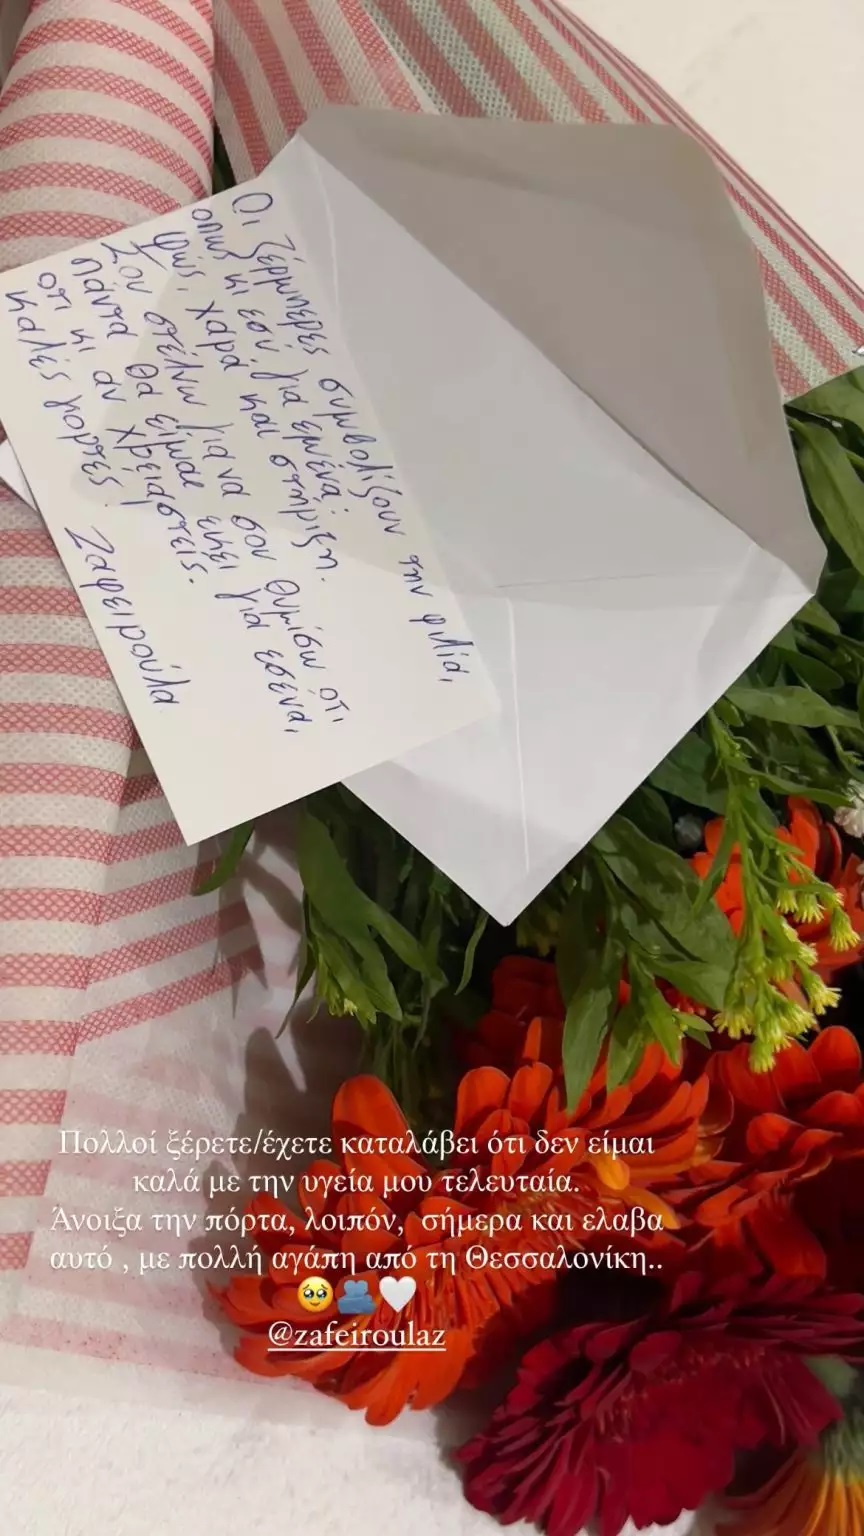 Οι ζέρμπερες συμβολίζουν την φιλία,
οπως κι εσύ, για εμένα:
φως, χαρά και στήριξη.
Σου στέλνω για να σου θυμίσω ότι
πάντα θα είμαι εκεί για εσένα,
ότι κι να χρειαστείς.
καλές γιορτές.
Ζαφειρούλα
Πολλοί ξέρετε/έχετε καταλάβει ότι δεν είμαι
καλά με την υγεία μου τελευταία.
Άνοιξα την πόρτα, λοιπόν, σήμερα και ελαβα
αυτό , με πολλή αγάπη από τη Θεσσαλονίκη..
🥹🫂🤍
@zafeiroulaz